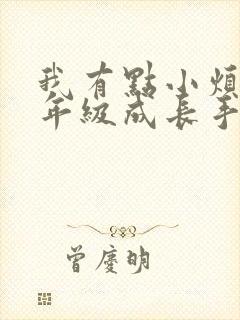 我有點小煩
年級成長手
曾慶明